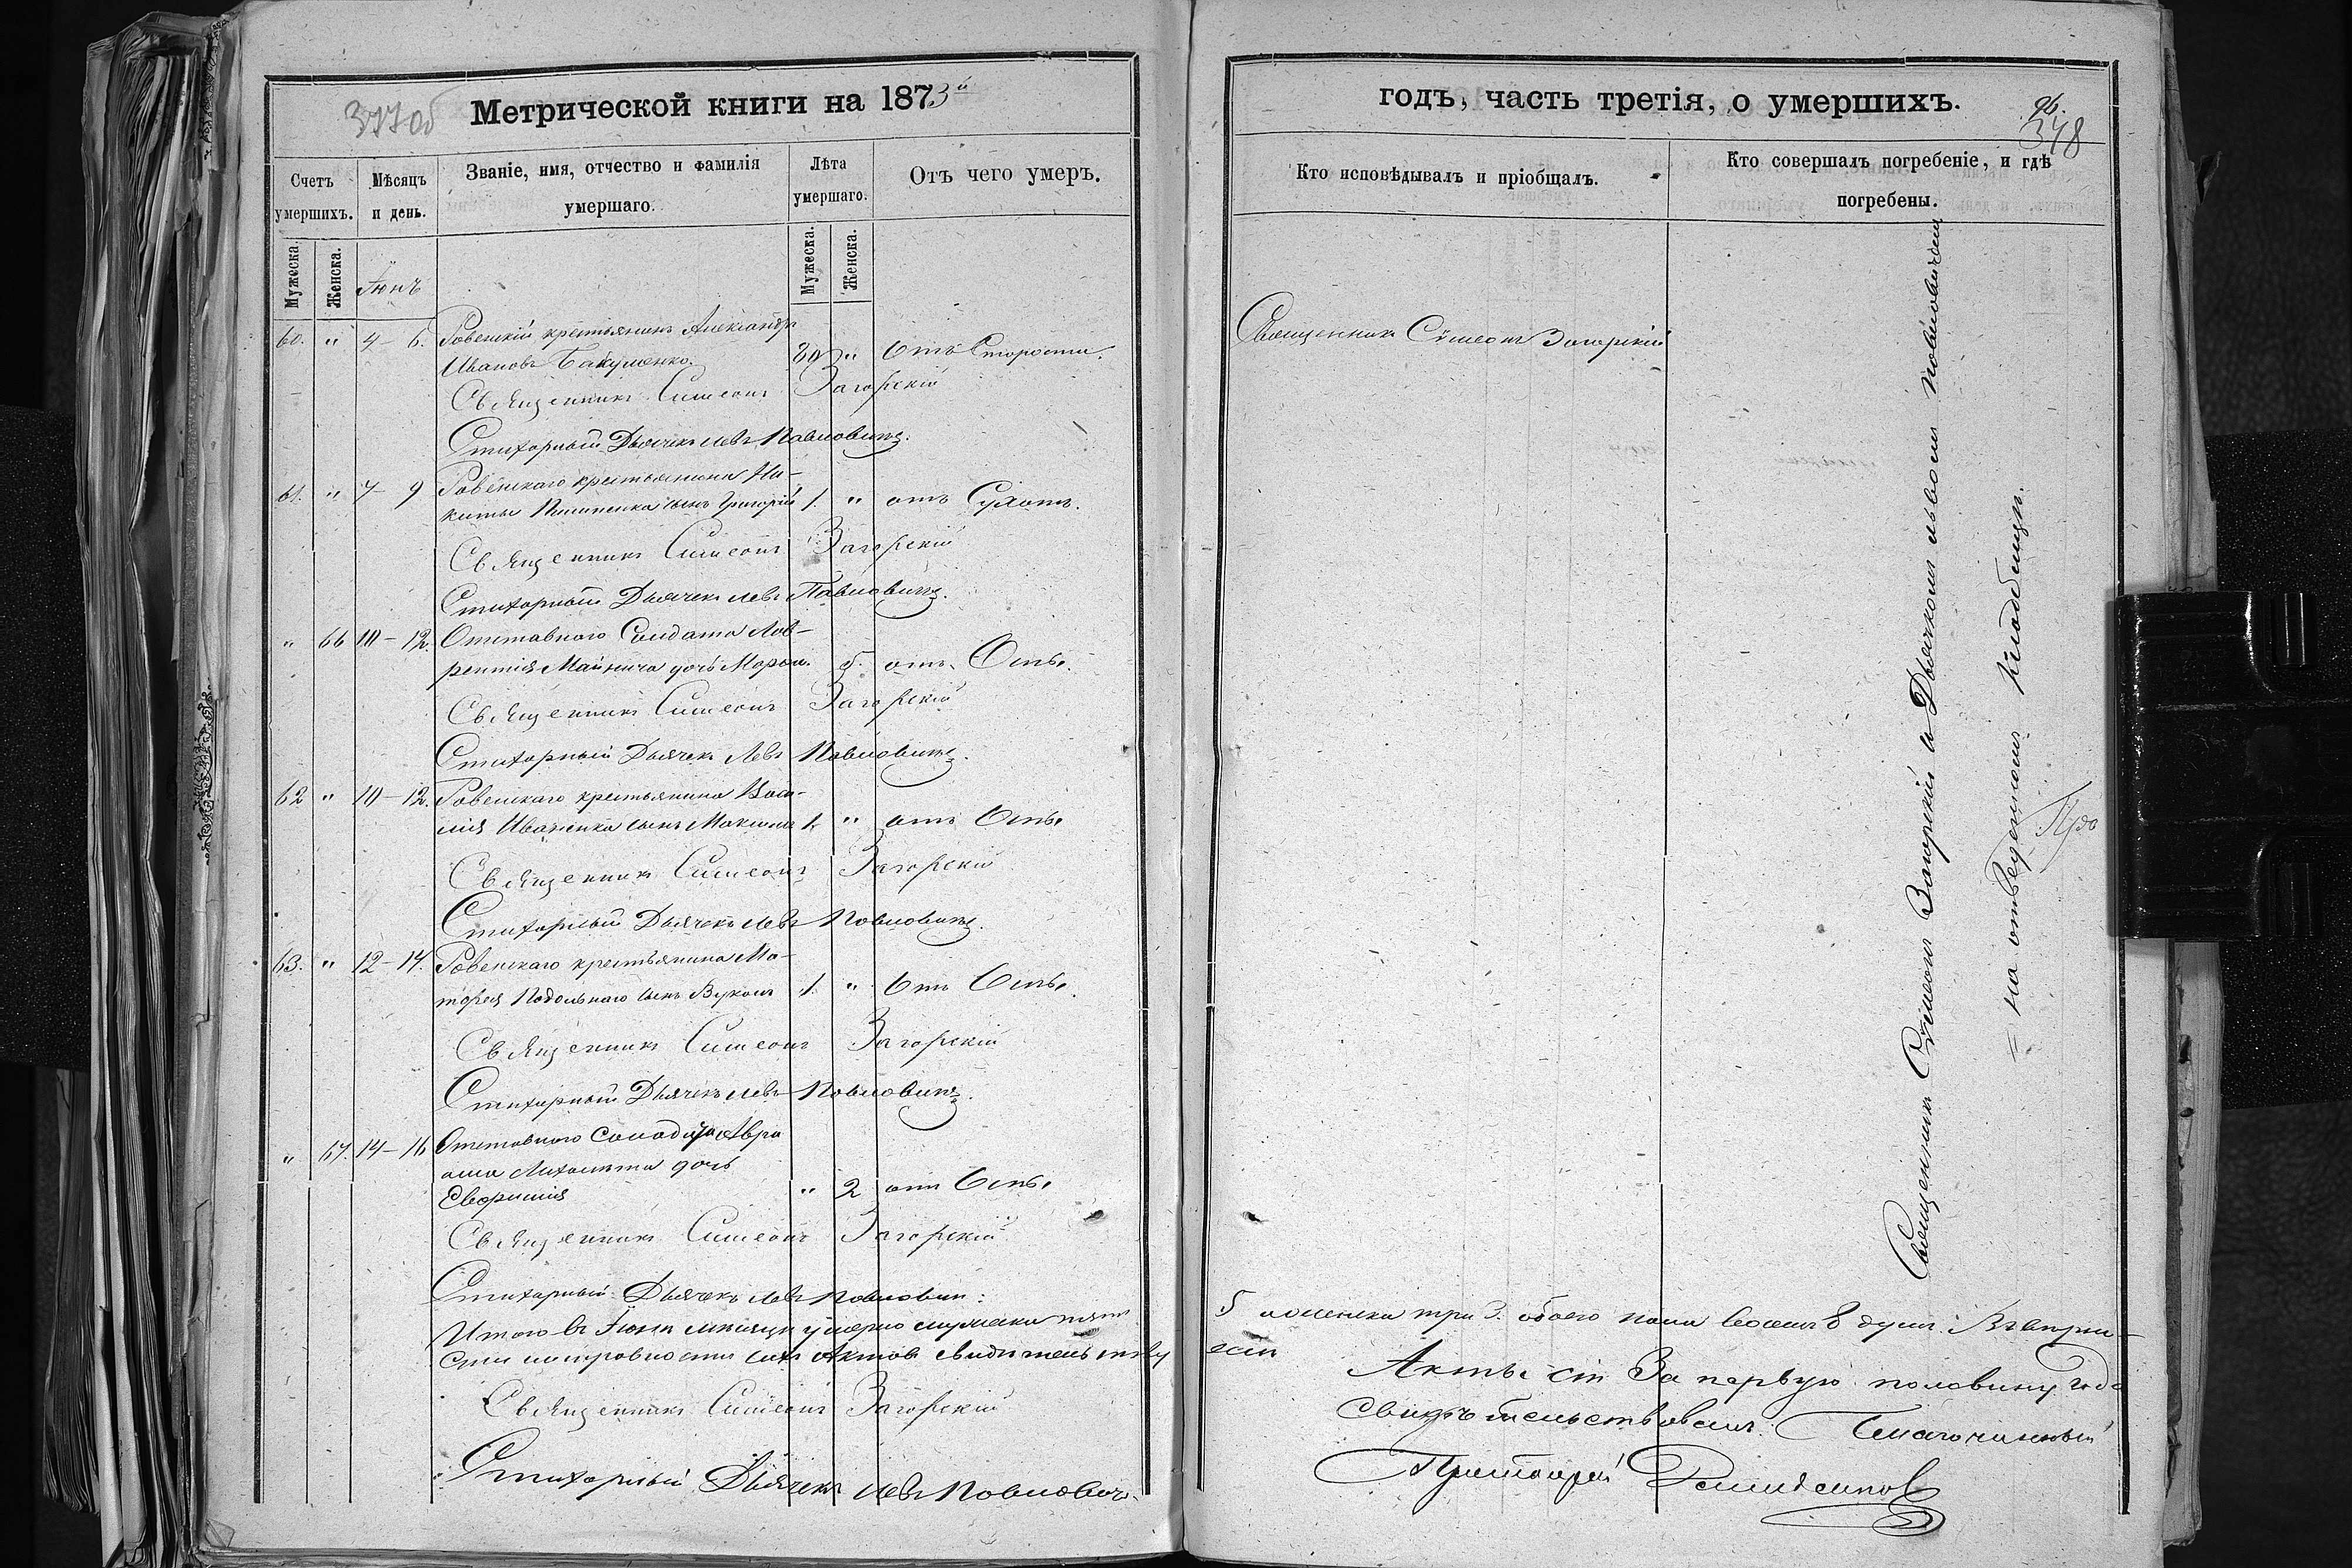 377об Метрической книги на 1873й
Счетъ умершихъ.
Мѣсяцъ и день.
Званіе, имя, отчество и фамилія умершаго.
Лѣта умершаго.
Отъ чего умеръ.
Мужеска.
Женска.
Іюнь
Мужеска.
Женска.
60. " 4 – 6. Ровенскій крестьянинъ Александръ
Ивановъ Бакуменко. 80 " Отъ Старости.
Священникъ Симеонъ Загорскій
Стихарный Дьячекъ Левъ Павловичъ.
61. " 7 – 9 Ровенскаго крестьянина Ни-
киты сынъ Григорій 1. " отъ Сухотъ.
Священникъ Симеонъ Загорскій
Стихарный Дьячекъ Левъ Павловичъ.
" 66 10 – 12. Отставнаго Солдата Лав-
рентія дочь Марѳа. 5. отъ Оспы.
Священникъ Симеонъ Загорскій
Стихарный Дьячекъ Левъ Павловичъ.
62 " 10 – 12. Ровенскаго крестьянина Васи-
лія Иваненка сынъ Максимъ 1. " отъ Оспы
Священникъ Симеонъ Загорскій
Стихарный Дьячекъ Левъ Павловичъ.
63. " 12 – 14. Ровенскаго крестьянина Ма-
тѳея Подольнаго сынъ Вуколъ 1. " Отъ Оспы.
Священникъ Симеонъ Загорскій
Стихарный Дьячекъ Левъ Павловичъ.
" 67. 14 – 16 Отставнаго Солдата Авра
ама дочь
Евфимія " 2 отъ Оспы
Священникъ Симеонъ Загорскій
Стихарный Дьячекъ Левъ Павлович:
Итого въ Іюнѣ мѣсяцѣ умерло мужеска пять
сихъ Актовъ свидѣтельству
Священникъ Симеонъ Загорскій
Стихарный Дьячекъ Левъ Павловичъ
годъ, часть третія, о умершихъ.
96.
348
Кто исповѣдывалъ и пріобщалъ.
Кто совершалъ погребеніе, и гдѣ погребены.
Священникъ Сѵмеонъ Загорскій
Священникъ Сѵмеонъ Загорскій съ Дьячкомъ Львомъ Павловичемъ
= на отведенномъ кладбищѣ.
5 женска три 3. обоего пола восемь 8 душъ. Въ вѣрно-
емъ
Акты сіи За первую половину года
свидѣтельствовалъ. Благочинный
Протоіерей